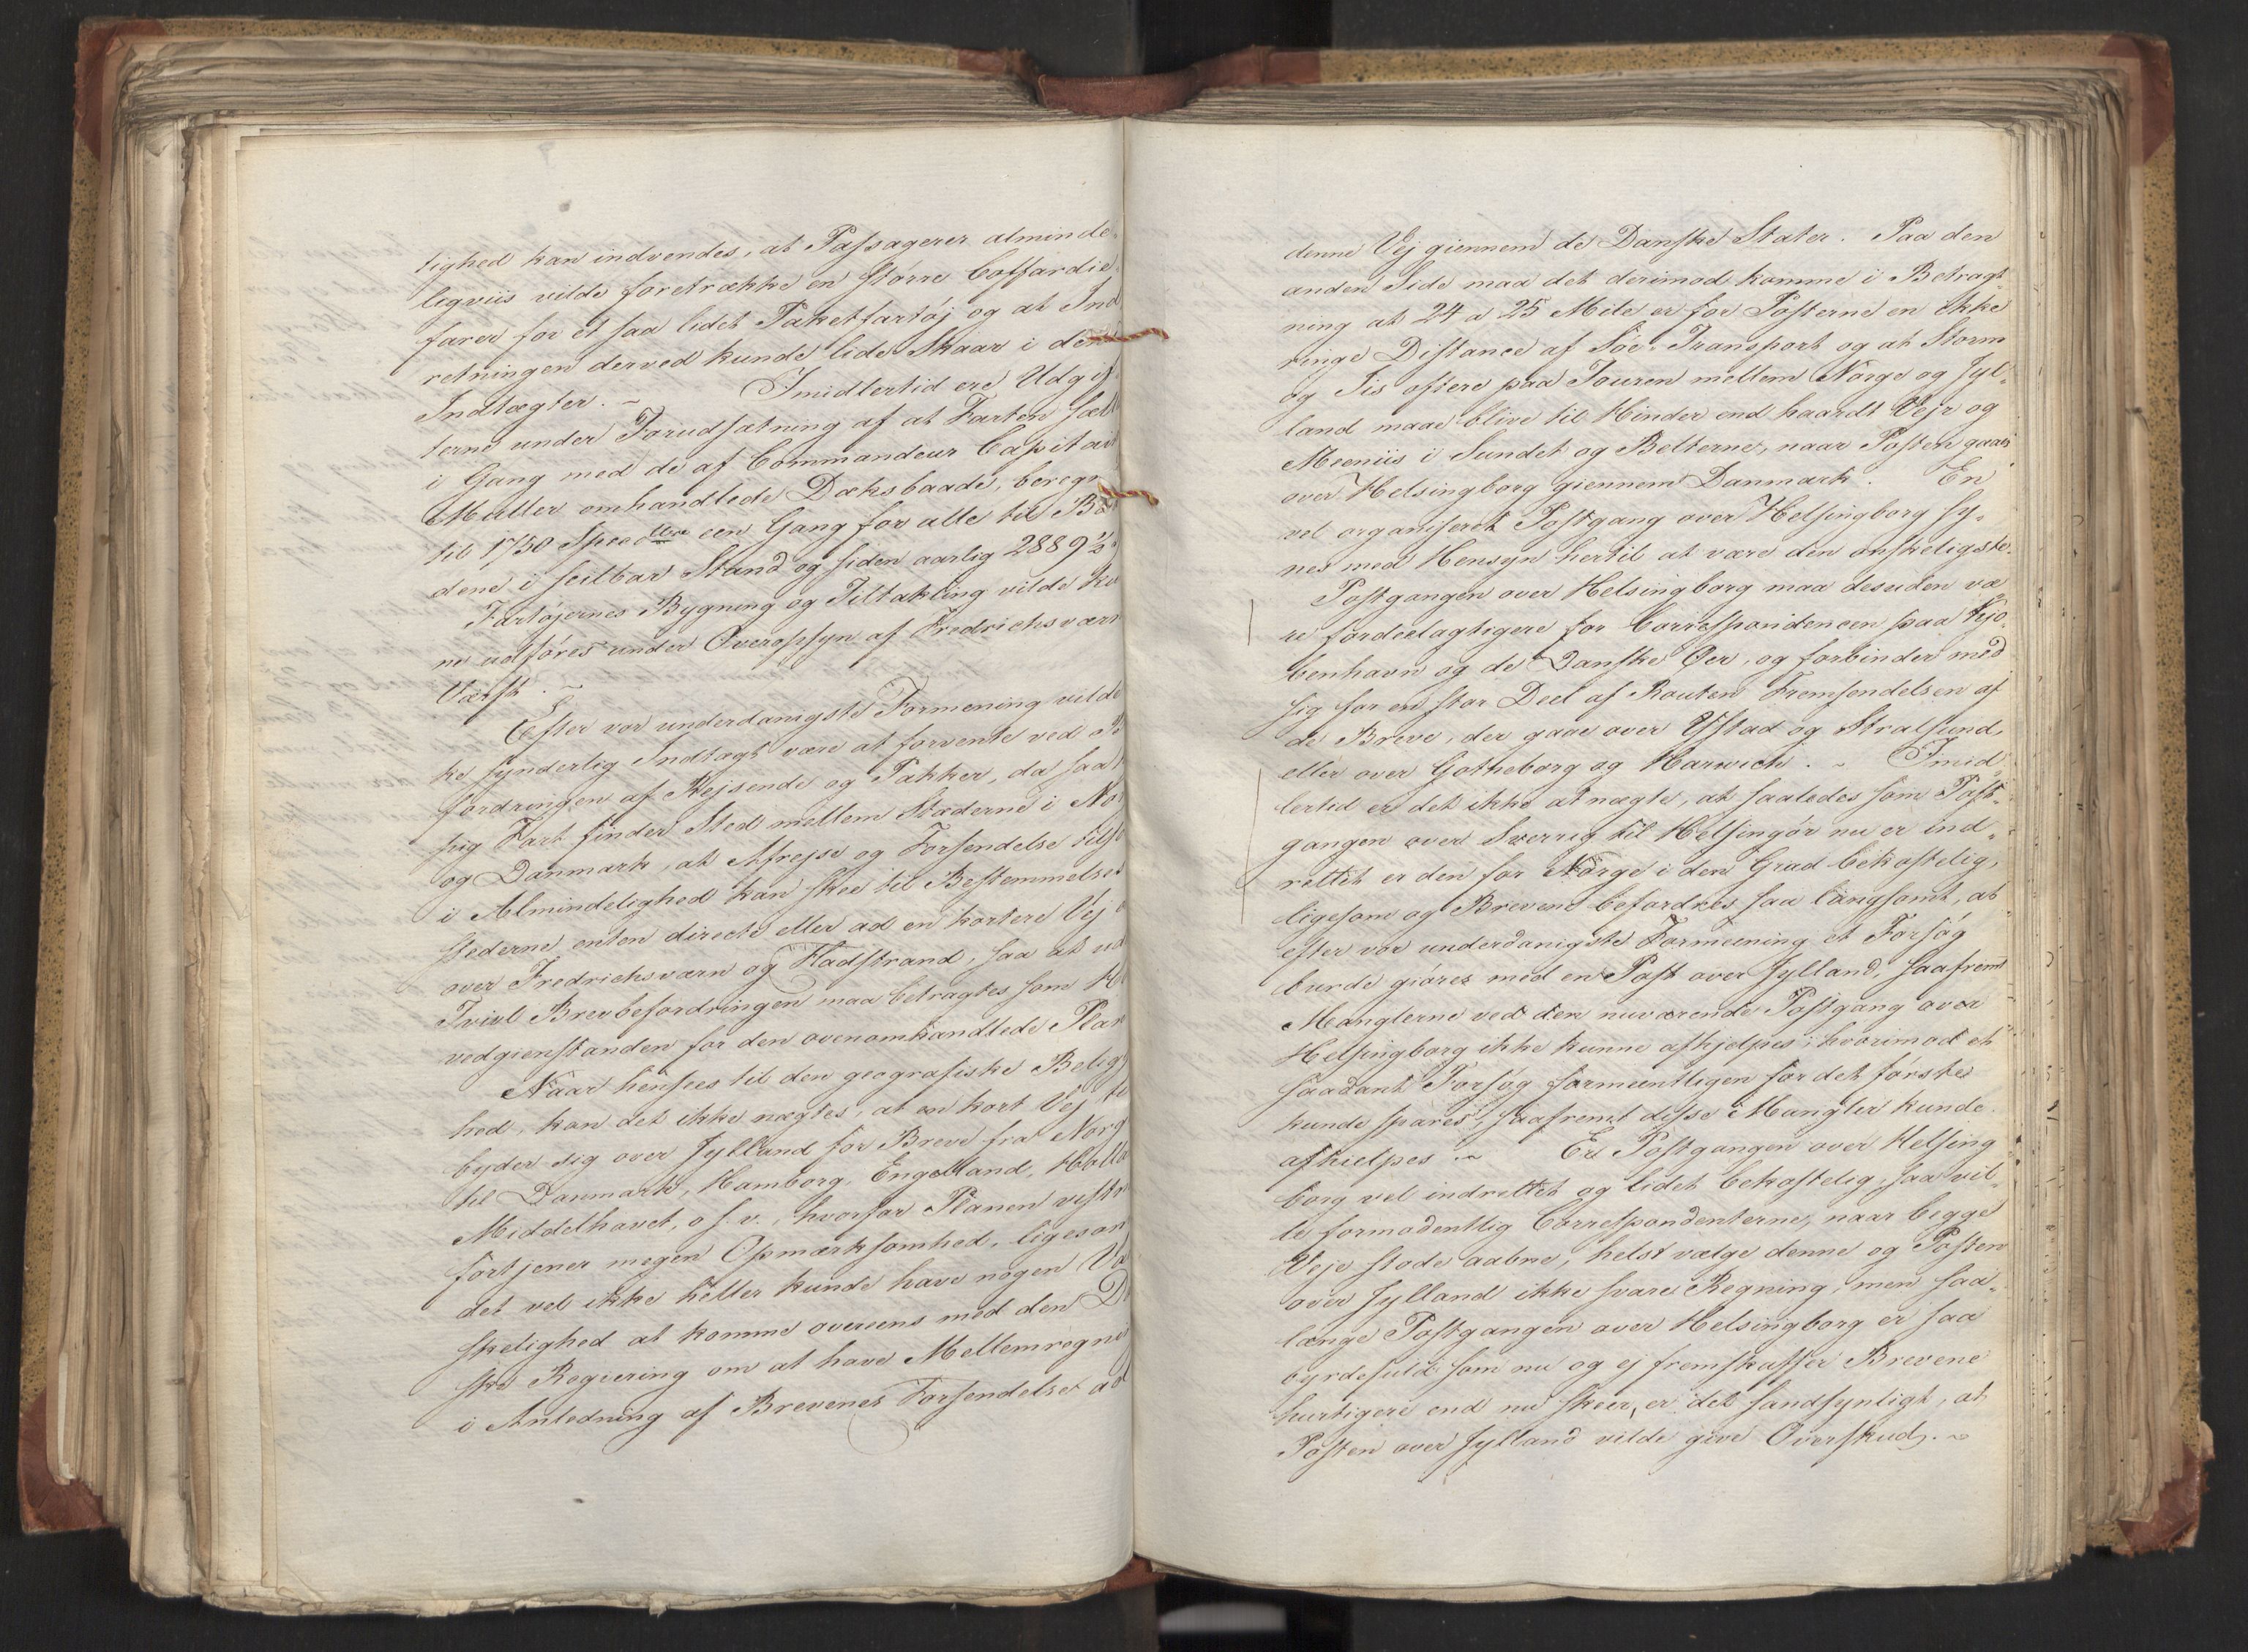 tighed kan indvendes, at Passagerer alminde-
ligviis vilde foretrække en større Coffardie-
farer for et saa lidet Paketfartøj og at Ind
retningen derved kunde lide Skaar i de
Indtægter. ~ Imidlertid ere Udgif
terne under Forudsætning af at Farten sætt
i Gang med de af Commandeur Capitai
Müller omhandlede Dæksbaade, bereg
til 1750 Specdlr een Gang for alle til B
dene i seilbar Stand og siden aarlig 2889½
Fartøjernes Bygning og Tiltakling vilde ku
ne udføres under Overopsyn af Fredrichsværn
Værft. ~
Efter vor underdanigste Formening vilde
ke synderlig Indtægt være at forvente ved
fordringen af Rejsende og Pakker, da saa
pig Fart finder Sted mellem Stæderne i Nor
og Danmark, at Afrejse og Forsendelse
i Almindelighed kan skee til Bestemmelses
stederne enten directe eller ad en kortere Vej
over Fredrichsværn og Fladstrand, saa at ud
Tvivl Brevbefordringen maa betragtes som H
vedgienstanden for den ovenomhandlede Plan
Naar hensees til den geografiske Belig
hed, kan det ikke nægtes, at en kort Vej
byder sig over Jylland for Breve fra Norg
til Danmark, Hamborg, Engelland, Holla
Middelhavet, o.s.v., hvorfor Planen vist
fortjener megen Opmærksomhed, ligesom
det vel ikke heller kunde have nogen Va
skelighed at komme overeens med den D
ske Regiering om at have Mellemregn
i Anledning af Brevenes Forsendelse ad
denne Vej giennem de Danske Stater. Paa den
anden Side maa det derimod komme i Betragt
ning at 24 a 25 Mile er for Posterne en ikke
ringe Distance af Søe-Transport og at Storm
og Iis oftere paa Touren mellem Norge og Jyl-
land maae blive til Hinder end haardt Vejr og
Meeniis i Sundet og Belterne, naar Posten gaar
over Helsingborg giennem Danmark. En
vel organiseret Postgang over Helsingborg sy-
nes med Hensyn hertil at være den ønskeligste.
Postgangen over Helsingborg maa desuden væ
re fordeelagtigere for Correspondencen paa Kjø-
benhavn og de Danske Øer, og forbinder med
sig for en stor Deel af Routen Fremsendelsen af
de Breve, der gaae over Ystad og Stralsund,
eller over Gotheborg og Harwich. ~ Imid
lertid er det ikke at nægte, at saaledes som Post-
gangen over Sverrig til Helsingør nu er ind-
rettet er den for Norge i den Grad bekostelig,
ligesom og Brevene befordres saa langsomt, at
efter vor underdanigste Formeening et Forsøg
burde giøres med en Post over Jylland, saafremt
Manglerne ved den nuværende Postgang over
Helsingborg ikke kunne afhjelpes; hvorimod et
saadant Forsøg formeentligen for det første
kunde spares, saafremt disse Mangler kunde
afhielpes. ~ Er Postgangen over Helsing
borg vel indrettet og lidet bekostelig, saa vil-
le formodentlig Correspondenterne, naar begge
Veje stode aabne, helst vælge denne og Posten
over Jylland ikke svare Regning, men saa-
længe Postgangen over Helsingborg er saa
byrdefuld som nu og ej fremskaffer Brevene
hurtigere end nu skeer, er det sandsynligt, at
Posten over Jylland vilde give Overskud. ~